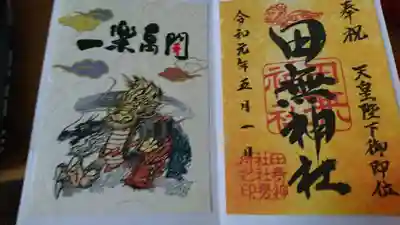 一樂萬開
奉祝
天皇陛下御即位
田無神社
令和元年五月一日